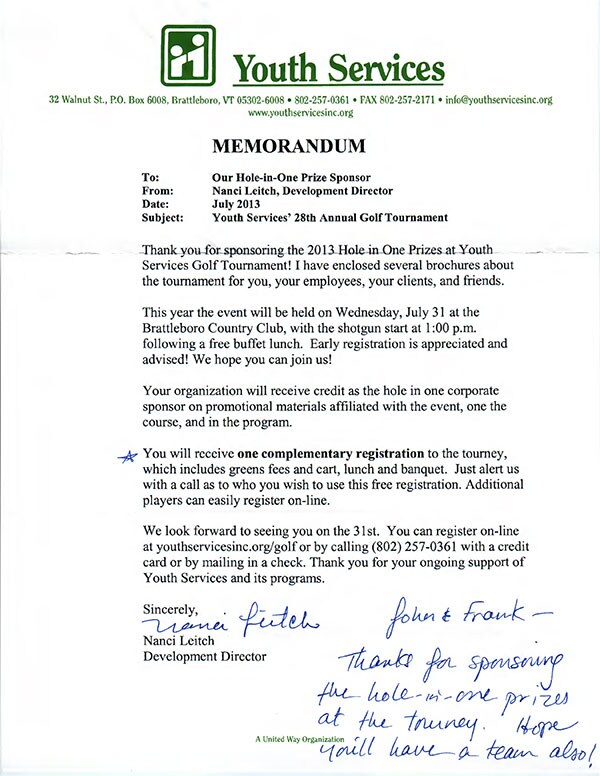 Youth Services
32 Walnut St., P.O. Box 6008, Brattleboro, VT 05302-6008 • 802-257-0361 • FAX 802-257-2171 • info@youthservicesinc.org
www.youthservicesinc.org
MEMORANDUM
To: Our Hole-in-One Prize Sponsor
From: Nanci Leitch, Development Director
Date: July 2013
Subject: Youth Services' 28th Annual Golf Tournament
Thank you for sponsoring the 2013 Hole in One Prizes at Youth
Services Golf Tournament! I have enclosed several brochures about
the tournament for you, your employees, your clients, and friends.
This year the event will be held on Wednesday, July 31 at the
Brattleboro Country Club, with the shotgun start at 1:00 p.m.
following a free buffet lunch. Early registration is appreciated and
advised! We hope you can join us!
Your organization will receive credit as the hole in one corporate
sponsor on promotional materials affiliated with the event, one the
course, and in the program.
You will receive one complementary registration to the tourney,
which includes greens fees and cart, lunch and banquet. Just alert us
with a call as to who you wish to use this free registration. Additional
players can easily register on-line.
We look forward to seeing you on the 31st. You can register on-line
at youthservicesinc.org/golf or by calling (802) 257-0361 with a credit
card or by mailing in a check. Thank you for your ongoing support of
Youth Services and its programs.
Sincerely,
Nanci Leitch
Nanci Leitch
Development Director
John & Frank —
Thanks for sponsoring
the hole-in-one prizes
at the tourney. Hope
you'll have a team also!
A United Way Organization